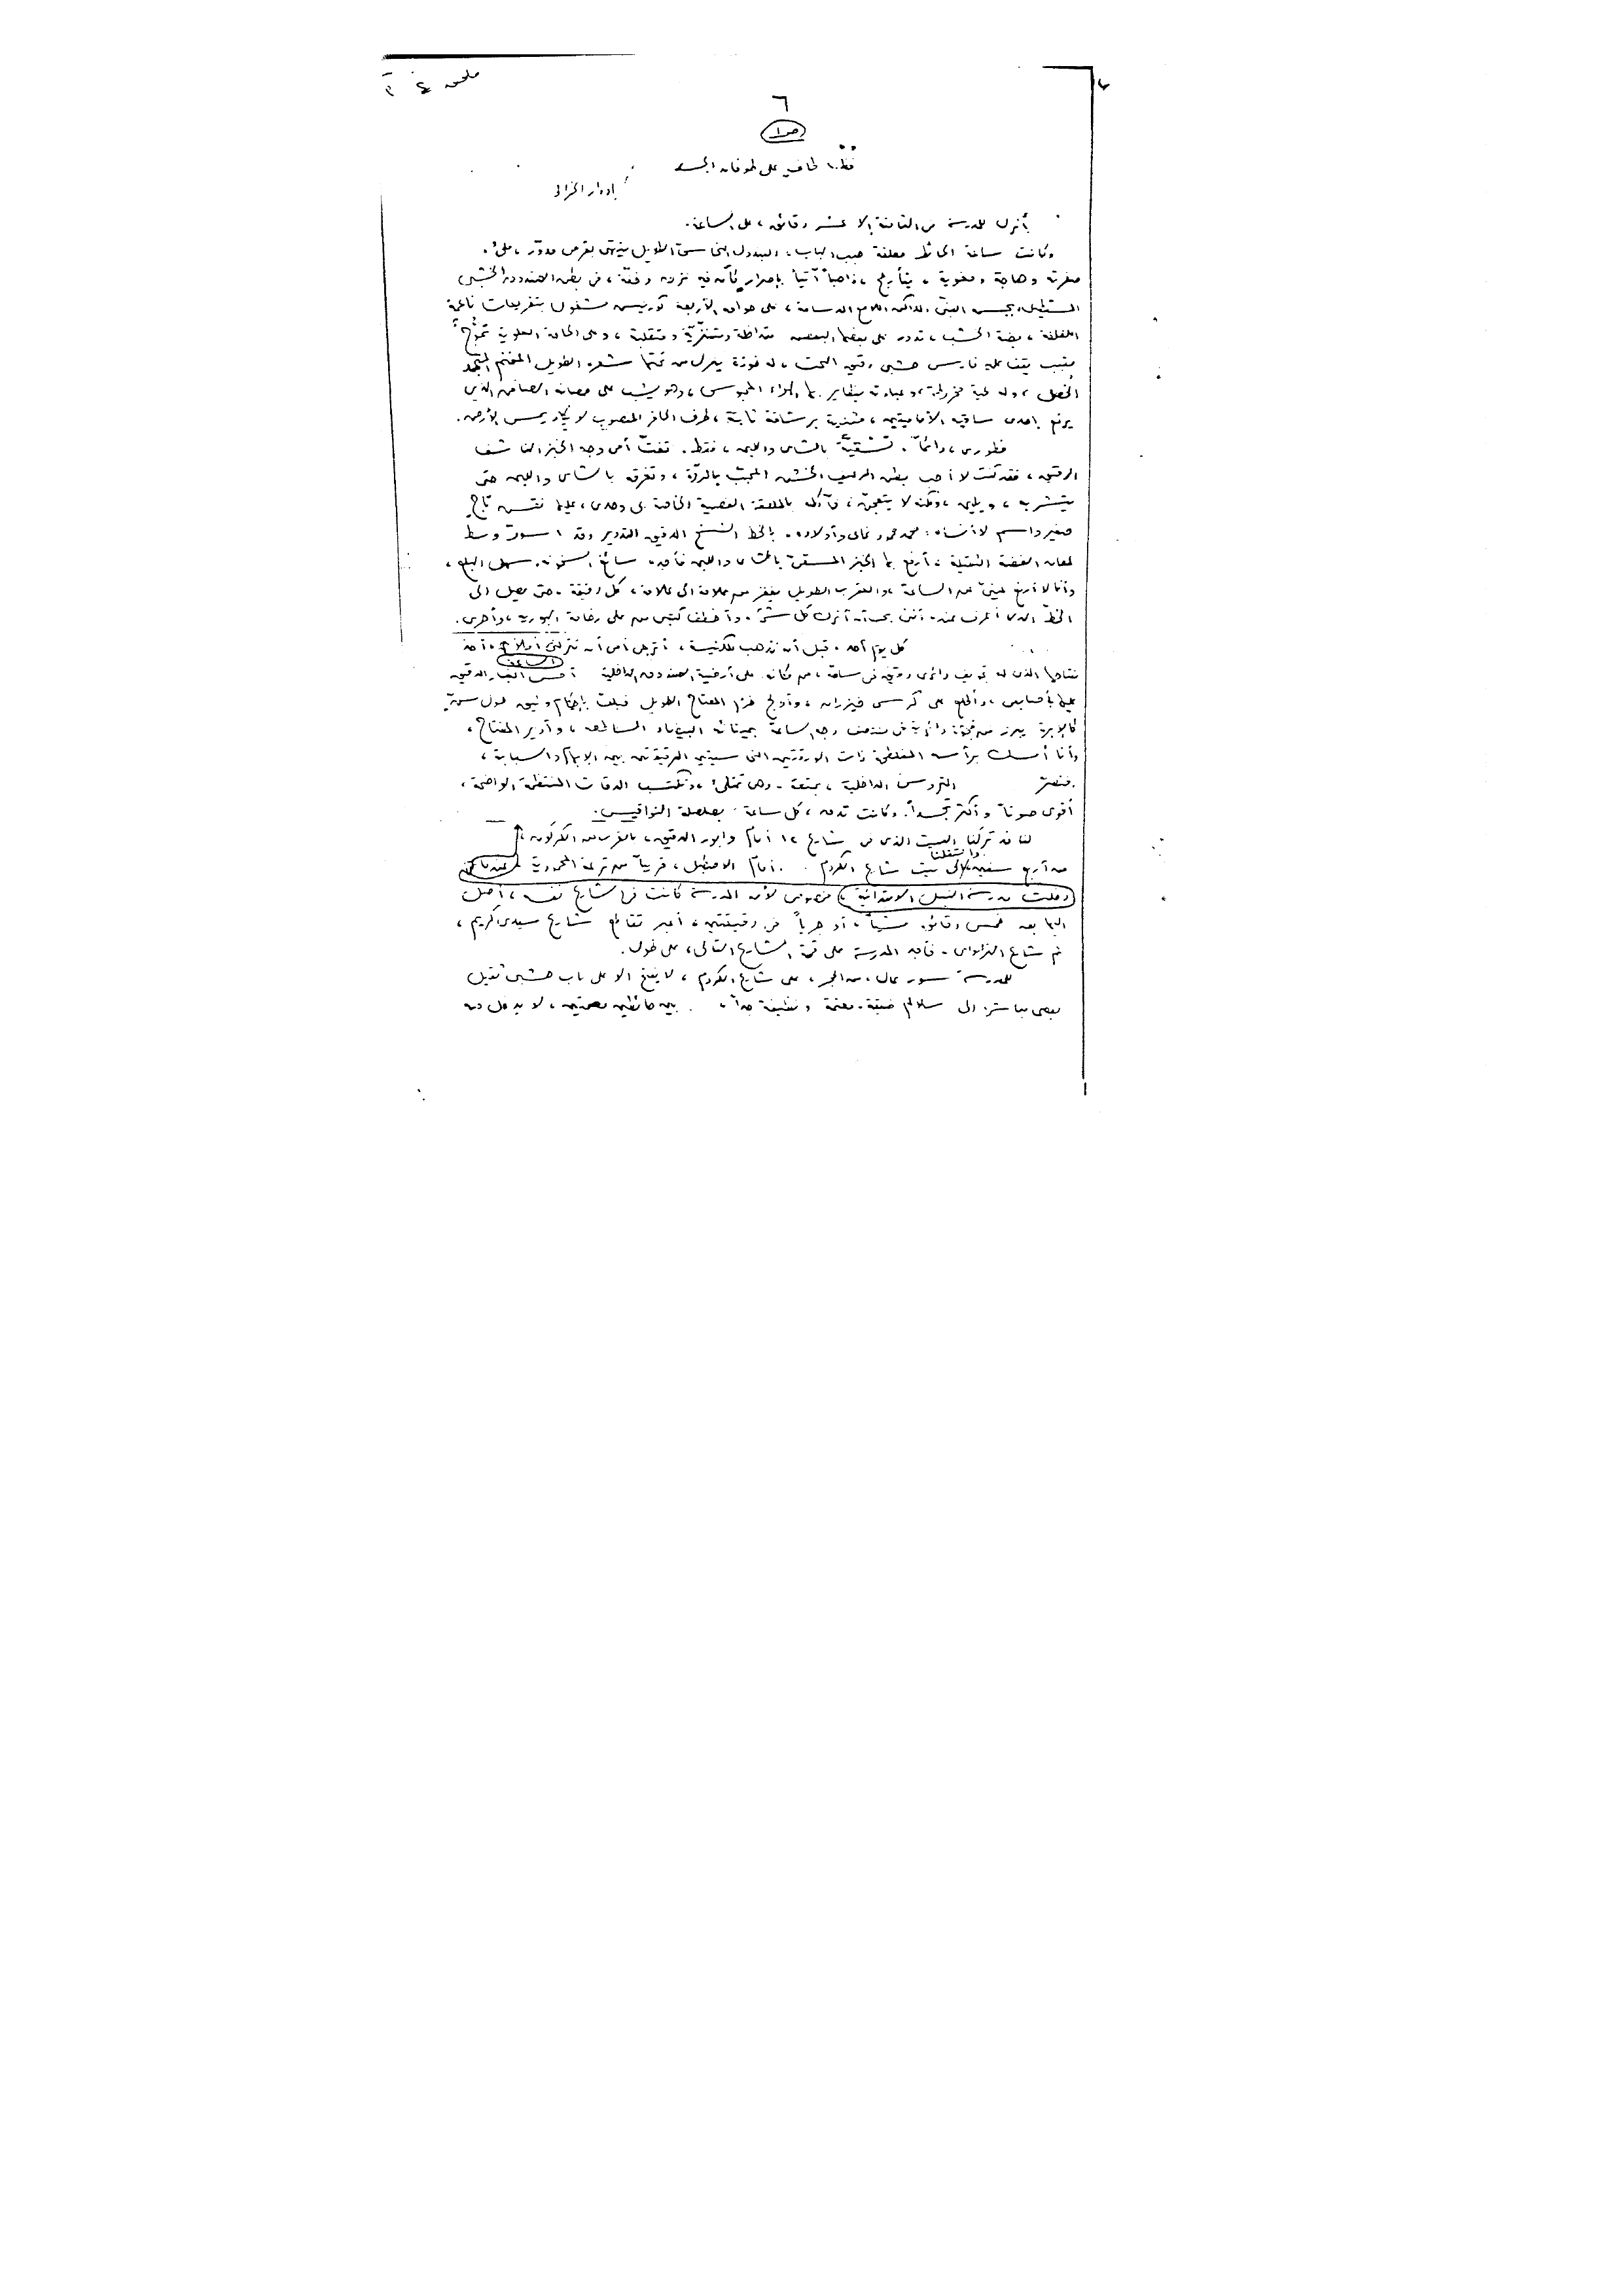 ٦
فظ.. طاف على طوفان الجسد
إدوار الخراط
أنزل للمدرسة من الثامنة إلا عشر دقائق، على الساعة.
وكانت ساعة الحائط معلقة جنب الباب، البندول النحاسى الطويل ينتهى بقرص مدوّر، ملئ،
صفرته وهاجة ومغوية، يتأرجح، ذاهباً آتياً بإصرار كأن فيه نزق وخفّة، فى بطن الصندوق الخشبى
المستطيل، البنى الداكن اللامع، على حوافه الأربعة كورنيش مشغول بتفريعات ناعمة
الخشب، تدور على بعضها البعض متداخلة ومتفرّية ومتقلبة، وعلى الحافة العلوية تموّج
مقبب يقف عليه فارس خشبى دقيق النحت، له خوذة ينزل من تحتها شعره الطويل
الخصل، وله لحية مخروطة، وعباءته يتطاير بها الهواء المحبوس، وهو يشب على حصانه الصافن الذى
يرفع إحدى ساقيه الأماميتين، مثنية برشاقة ثابتة، طرف الحافر المصبوب لا يكاد يمس الأرض.
فطورى، دائماً، تسقيّة بالشاى واللبن، فقط. تفتّ أمى وجه الخبز الناشف
الرقيق، فقد كنت لا أحب بطن الرغيف الخشن المحبّب بالردّة، وتغرقه بالشاى واللبن حتى
يتشربه، ويلين، ولكنه لا يتعجن، فآكله بالملعقة الفضية الخاصة بى وحدى، عليها نقش تاج
صغير واسم لا أنساه: محمد محمود غالى وأولاده. بالخط النسخ الدقيق التدوير وقد اسودّ وسط
لمعان الفضة الثقيلة، أرفع بها الخبز المسقىّ بالشاى واللبن فأجده سائغ السخونة، سهل البلع،
وأنا لا أرفع عينىّ عن الساعة، والعقرب الطويل يقفز من علامة الى علامة، كل دقيقة، حتى يصل الى
الخطّ الذى أعرف عنده أننى يجب أن أترك كل شئ، وأخطف كتبى من على رخامة البوريه، وأجرى.
كل يوم أحد، قبل أن نذهب للكنيسة، أترجى أمى أن تتركنى أملأ الساعة، آخذ
مفتاحها الذى له تجويف دائرى دقيق فى ساقه، من مكانه على أرضية الصندوق الداخلية، أمس الغبار الدقيق
عليها بأصابعى، وأطلع على كرسى خيزران، وأولج هذا المفتاح الطويل فيلف بإحكام وثيق حول سنّ
كالإبرة يبرز من فجوة دائرية فى منتصف وجه الساعة بميناء البيضاء الساطعه، وأدير المفتاح،
وأنا أمسك برأسه المفلطح ذات الورقتين المستديرتين الرقيقتين بين الإبهام والسبابة،
فتصرّ التروس الداخلية، بمتعة، وهى تمتلئ، وتكتسب الدقات المنتظمة الواضحة،
أقوى صوتاً وأكثر تجسداً. وكانت تدق، كل ساعة، بصلصلة النواقيس.
كنا قد تركنا البيت الذى فى شارع ١٢ أمام وابور الدقيق، بالقرب من الكركون،
وانتقلنا
من أربع سنين الى بيت شارع الكروم، أمام الاصطبل، قريباً من ترعة المحمودية
دخلت مدرسة النيل الابتدائية، لأن المدرسة كانت فى الشارع نفسه، أصل
اليها بعد خمس دقائق مشياً، أو جرياً فى دقيقتين، أعبر تقاطع شارع سيدى كريم،
ثم شارع النزلاوى، فأجد المدرسة على قمة الشارع التالى، على طول.
للمدرسة سور عال، من الحجر، على شارع الكروم، لا يفتح الا على باب خشبى ثقيل
يفضى مباشرة الى سلالم ضيقة، معتمة ونظيفة جداً، بين حائطين مصمتين، لا يدخل منه